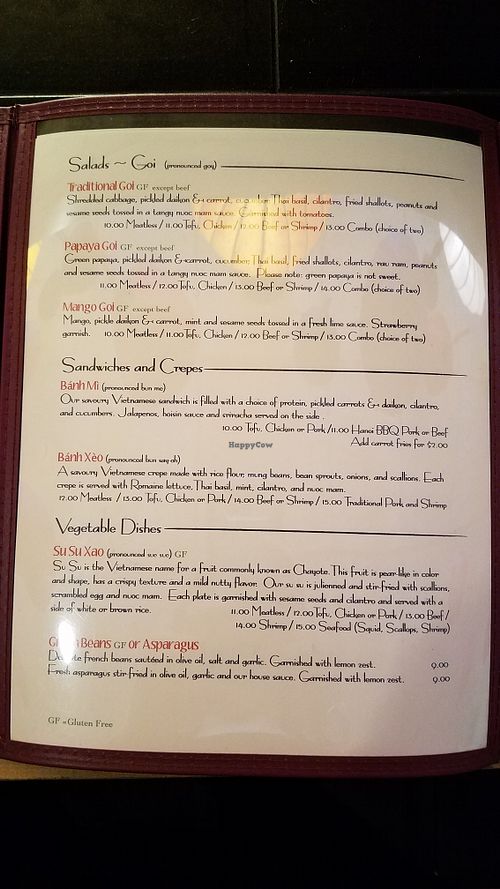 Salads ~ Goi (pronounced goy)
Traditional Goi GF except beef
Shredded cabbage, pickled daikon & carrot, cucumber, Thai basil, cilantro, fried shallots, peanuts and
sesame seeds tossed in a tangy nuoc mam sauce. Garnished with tomatoes.
10.00 Meatless / 11.00 Tofu, Chicken / 12.00 Beef or Shrimp / 13.00 Combo (choice of two)
Papaya Goi GF except beef
Green papaya, pickled daikon & carrot, cucumber, Thai basil, fried shallots, cilantro, rau ram, peanuts
and sesame seeds tossed in a tangy nuoc mam sauce. Please note: green papaya is not sweet.
11.00 Meatless / 12.00 Tofu, Chicken / 13.00 Beef or Shrimp / 14.00 Combo (choice of two)
Mango Goi GF except beef
Mango, pickle daikon & carrot, mint and sesame seeds tossed in a fresh lime sauce. Strawberry
garnish. 10.00 Meatless / 11.00 Tofu, Chicken / 12.00 Beef or Shrimp / 13.00 Combo (choice of two)
Sandwiches and Crepes
Bánh Mì (pronounced bun me)
Our savoury Vietnamese sandwich is filled with a choice of protein, pickled carrots & daikon, cilantro,
and cucumbers. Jalapenos, hoisin sauce and sriracha served on the side.
10.00 Tofu, Chicken or Pork / 11.00 Hanoi BBQ Pork or Beef
Add carrot fries for $2.00
HappyCow
Bánh Xèo (pronounced bun say oh)
A savoury Vietnamese crepe made with rice flour, mung beans, bean sprouts, onions, and scallions. Each
crepe is served with Romaine lettuce, Thai basil, mint, cilantro, and nuoc mam.
12.00 Meatless / 13.00 Tofu, Chicken or Pork / 14.00 Beef or Shrimp / 15.00 Traditional Pork and Shrimp
Vegetable Dishes
Su Su Xao (pronounced sue sue) GF
Su Su is the Vietnamese name for a fruit commonly known as Chayote. This fruit is pear-like in color
and shape, has a crispy texture and a mild nutty flavor. Our su su is julienned and stir-fried with scallions,
scrambled egg and nuoc mam. Each plate is garnished with sesame seeds and cilantro and served with a
side of white or brown rice. 11.00 Meatless / 12.00 Tofu, Chicken or Pork / 13.00 Beef /
14.00 Shrimp / 15.00 Seafood (Squid, Scallops, Shrimp)
Beans GF or Asparagus
french beans sautéed in olive oil, salt and garlic. Garnished with lemon zest. 9.00
Fresh asparagus stir-fried in olive oil, garlic and our house sauce. Garnished with lemon zest. 9.00
GF = Gluten Free